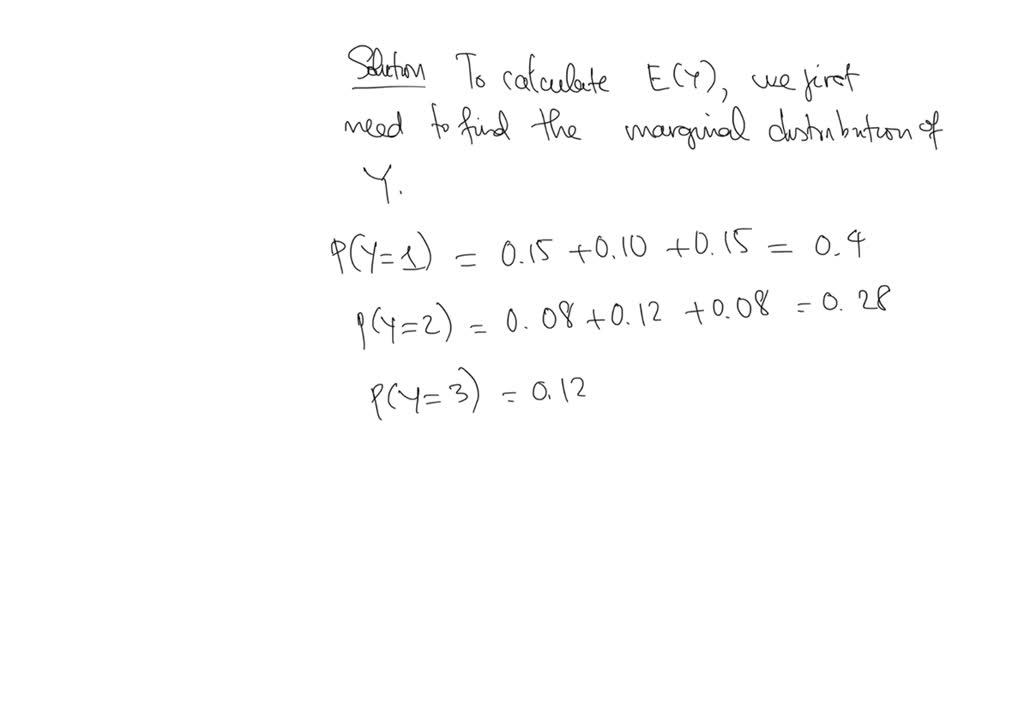 Solution To calculate E(Y), we first
need to find the marginal distribution of
Y.
P(Y=1) = 0.15 +0.10 +0.15 = 0.4
P(Y=2) = 0.08 +0.12 +0.08 = 0.28
P(Y=3) = 0.12